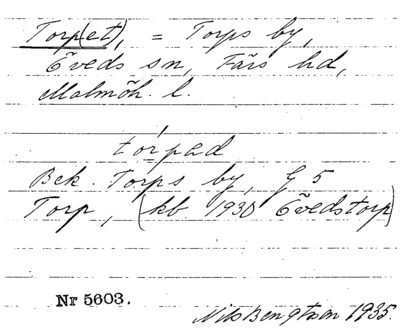 Torp(et), = Torps by,
Öveds sn, Färs hd,
Malmöh. l.
tórpad
Bek. Torps by, G 5
Torp, (kb 1930 Övedstorp)
Nr 5603.
Nils Bengtson 1935.